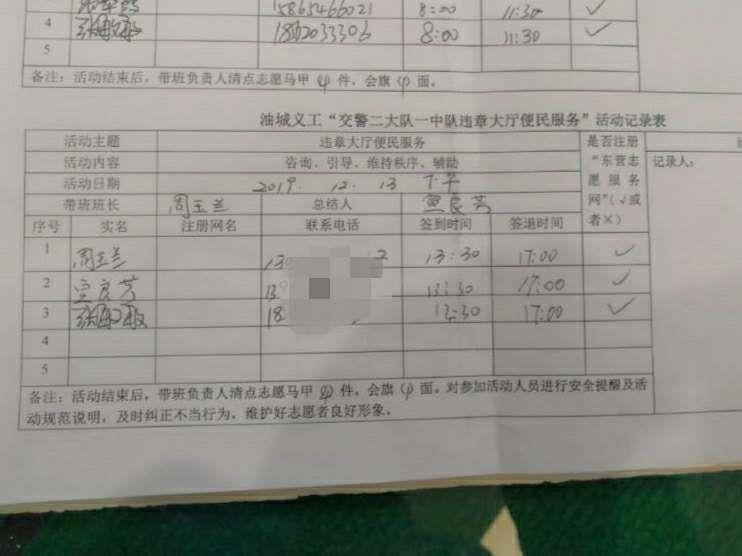 15865466021 8:00 11:30 ✓
4 8:00 11:30 ✓
5
备注：活动结束后，带班负责人清点志愿马甲 件，会旗 面。
油城义工“交警二大队一中队违章大厅便民服务”活动记录表
活动主题 违章大厅便民服务 是否注册
活动内容 咨询、引导、维持秩序、辅助 “东营志 记录人：
活动日期 2019. 12. 13 下午 愿服务
带班班长 周玉兰 总结人 宣良芳 网”（√或
序号 实名 注册网名 联系电话 签到时间 签退时间 者×）
1 周玉兰 13 2 13:30 17:00 ✓
2 宣良芳 13:30 17:00 ✓
3 18 13:30 17:00 ✓
4
5
备注：活动结束后，带班负责人清点志愿马甲 件，会旗 面。对参加活动人员进行安全提醒及活
动规范说明，及时纠正不当行为，维护好志愿者良好形象。